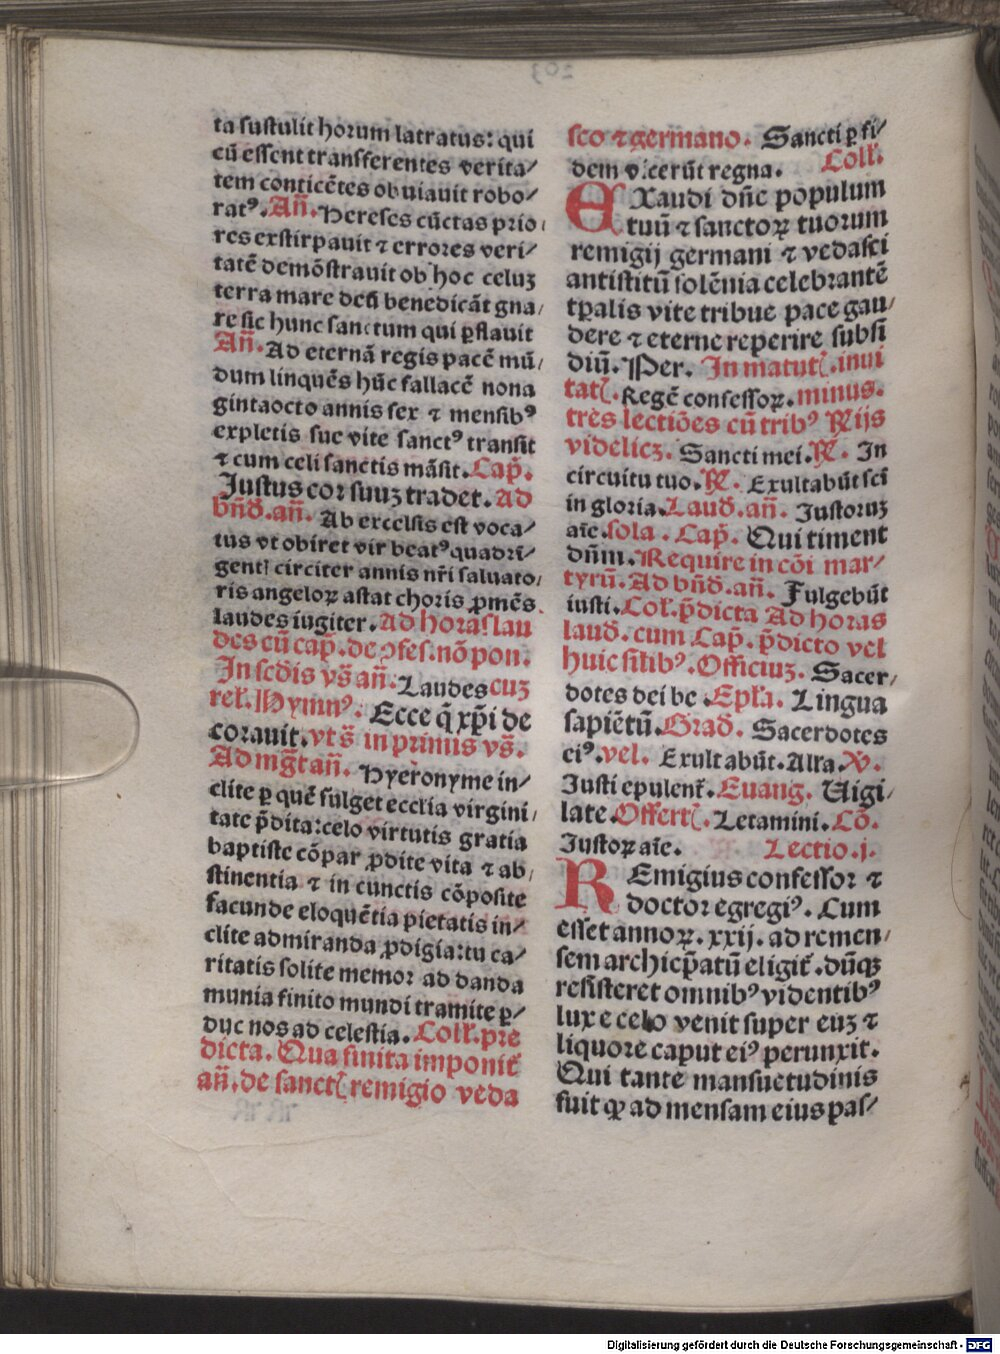 ta sustulit horum latratus: qui
cū essent transferentes verita/
tem conticētes obuiauit robo/
ratꝰ. Añ. Hereses cūctas prio/
res exstirpauit ⁊ errores veri/
tatē demōstrauit ob hoc celuꝫ
terra mare deū benedicāt gna/
re sic hunc sanctum qui ꝑflauit
Añ. Ad eternā regis pacē mū/
dum linquēs hūc fallacē nona
gintaocto annis sex ⁊ mensibꝰ
expletis sue vite sanctꝰ transit
⁊ cum celi sanctis māsit. Cap̄.
Justus cor suuꝫ tradet. Ad
bn̄d̄. añ. Ab excelsis est voca/
tus vt obiret vir beatꝰ quadrī/
genti circiter annis nr̄i saluato/
ris angeloꝝ astat choris ꝓmēs
laudes iugiter. Ad horas lau
des cū cap̄. de ꝯfes. nō pon.
In scd̄is vs̄ añ. Laudes cuꝫ
rel̄. Hymnꝰ. Ecce q̄ xp̄i de
corauit. vt s̄ in primis vs̄.
Ad mḡt añ. Hyeronyme in/
clite ꝑ quē fulget ecclia virgini/
tate p̄dita: celo virtutis gratia
baptiste cōpar ꝓdite vita ⁊ ab/
stinentia ⁊ in cunctis cōposite
facunde eloquētia pietatis in/
clite admiranda ꝓdigia: tu ca/
ritatis solite memor ad danda
munia finito mundi tramite ꝑ/
duc nos ad celestia. Coll̄. pre
dicta. Qua finita imponit̄
añ. de sanctꝭ remigio veda
sco ⁊ germano. Sancti ꝑ fi/
dem vicerūt regna. Coll̄.
EXaudi dn̄e populum
tuū ⁊ sanctoꝝ tuorum
remigij germani ⁊ vedasci
antistitū solēnia celebrantē
tꝑalis vite tribue pace gau/
dere ⁊ eterne reperire subsī
diū. Per. In matutꝭ. inui
tatꝭ. Regē confessoꝝ. minus.
tres lectiōes cū tribꝰ R̄ijs
videlicꝫ. Sancti mei. R̄. In
circuitu tuo. R̄. Exultabūt scī
in gloria. Laud̄. añ. Justoruꝫ
aīe. sola. Cap̄. Qui timent
dn̄m. Require in cōi mar/
tyrū. Ad bn̄d̄. añ. Fulgebūt
iusti. Col̄. p̄dicta Ad horas
laud̄. cum Cap̄. p̄dicto vel
huic silibꝰ. Officiuꝫ. Sacer/
dotes dei be. Epl̄a. Lingua
sapiētū. Grad̄. Sacerdotes
eiꝰ. vel. Exultabūt. Alra. V̄.
Justi epulent̄. Euang. Uigi/
late. Offertꝭ. Letamini. Cō.
Justoꝝ aīe. Lectio. j.
REmigius confessor ⁊
doctor egregiꝰ. Cum
esset annoꝝ. xxij. ad remen/
sem archiep̄atū eligit̄. dūqꝫ
resisteret omnibꝰ videntibꝰ
lux e celo venit super euꝫ ⁊
liquore caput eiꝰ perunxit.
Qui tante mansuetudinis
fuit ꝙ ad mensam eius pas/
Digitalisierung gefördert durch die Deutsche Forschungsgemeinschaft - DFG